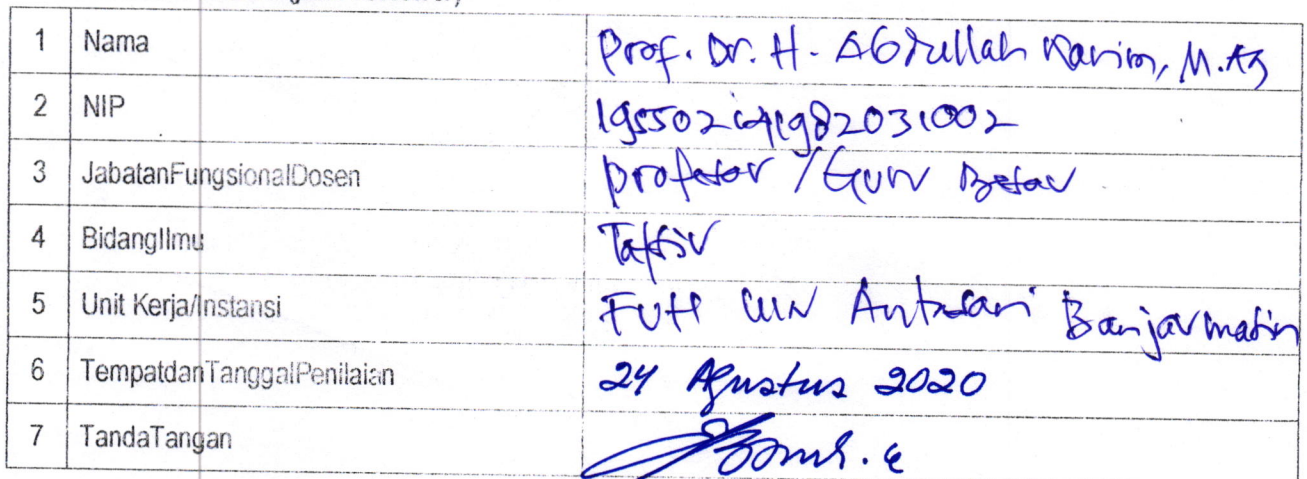 1 Nama Prof. Dr. H. Abdullah Karim, M.Ag
2 NIP 195502141982031002
3 JabatanFungsionalDosen Profesor / Guru Besar
4 BidangIlmu Tafsir
5 Unit Kerja/Instansi FUH UIN Antasari Banjarmasin
6 TempatdanTanggalPenilaian 24 Agustus 2020
7 TandaTangan